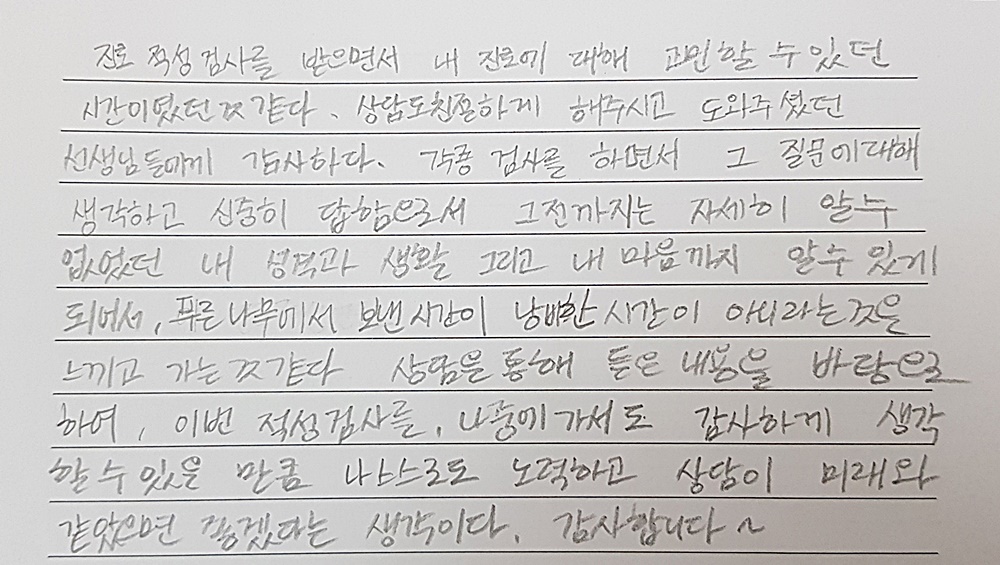 진로 적성검사를 받으면서 내 진로에 대해 고민할 수 있던
시간이였던것 같다. 상담도친절하게 해주시고 도와주셨던
선생님들에게 감사하다. 각종 검사를 하면서 그 질문에대해
생각하고 신중히 답함으로서 그전까지는 자세히 알수
없었던 내 성격과 생활 그리고 내 마음까지 알수있게
되어서, 푸른나무에서 보낸시간이 낭비한 시간이 아니라는것을
느끼고 가는것같다 상담을통해 들은 내용을 바탕으로
하여, 이번 적성검사를, 나중에가서도 감사하게 생각
할수있을 만큼 나스스로도 노력하고 상담이 미래와
같았으면 좋겠다는 생각이다. 감사합니다~